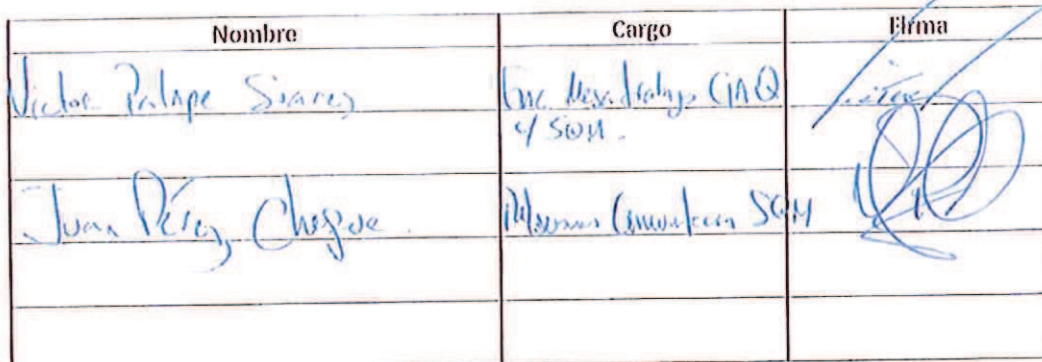 Nombre Cargo Firma
Victor Palape Suarez Enc. Mesa trabajo CAQ
y SQM.
Juan Pérez Chegue. Comunitarias SQM